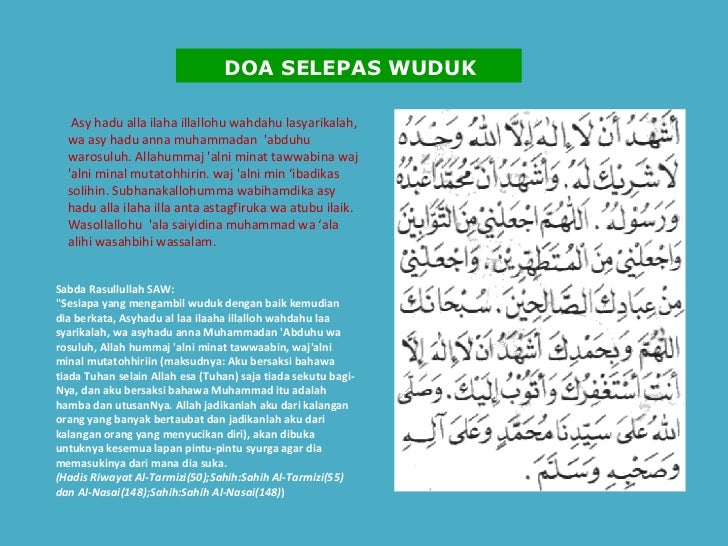 DOA SELEPAS WUDUK
Asy hadu alla ilaha illallohu wahdahu lasyarikalah,
wa asy hadu anna muhammadan 'abduhu
warosuluh. Allahummaj 'alni minat tawwabina waj
'alni minal mutatohhirin. waj 'alni min ‘ibadikas
solihin. Subhanakallohumma wabihamdika asy
hadu alla ilaha illa anta astagfiruka wa atubu ilaik.
Wasollallohu 'ala saiyidina muhammad wa ‘ala
alihi wasahbihi wassalam.
Sabda Rasullullah SAW:
"Sesiapa yang mengambil wuduk dengan baik kemudian
dia berkata, Asyhadu al laa ilaaha illalloh wahdahu laa
syarikalah, wa asyhadu anna Muhammadan 'Abduhu wa
rosuluh, Allah hummaj 'alni minat tawwaabin, waj'alni
minal mutatohhiriin (maksudnya: Aku bersaksi bahawa
tiada Tuhan selain Allah esa (Tuhan) saja tiada sekutu bagi-
Nya, dan aku bersaksi bahawa Muhammad itu adalah
hamba dan utusanNya. Allah jadikanlah aku dari kalangan
orang yang banyak bertaubat dan jadikanlah aku dari
kalangan orang yang menyucikan diri), akan dibuka
untuknya kesemua lapan pintu-pintu syurga agar dia
memasukinya dari mana dia suka.
(Hadis Riwayat Al-Tarmizi(50);Sahih:Sahih Al-Tarmizi(55)
dan Al-Nasai(148);Sahih:Sahih Al-Nasai(148))
أَشْهَدُ أَنْ لَا إِلٰهَ إِلَّا اللهُ وَحْدَهُ
لَا شَرِيْكَ لَهُ. وَأَشْهَدُ أَنَّ مُحَمَّدًا عَبْدُهُ
وَرَسُوْلُهُ. اَللّٰهُمَّ اجْعَلْنِيْ مِنَ التَّوَّابِيْنَ
وَاجْعَلْنِيْ مِنَ الْمُتَطَهِّرِيْنَ. وَاجْعَلْنِيْ
مِنْ عِبَادِكَ الصَّالِحِيْنَ. سُبْحَانَكَ
اللّٰهُمَّ وَبِحَمْدِكَ أَشْهَدُ أَنْ لَا إِلٰهَ إِلَّا
أَنْتَ أَسْتَغْفِرُكَ وَأَتُوْبُ إِلَيْكَ. وَصَلَّى
اللهُ عَلَى سَيِّدِنَا مُحَمَّدٍ وَعَلَى آلِهِ
وَصَحْبِهِ وَسَلَّمَ.